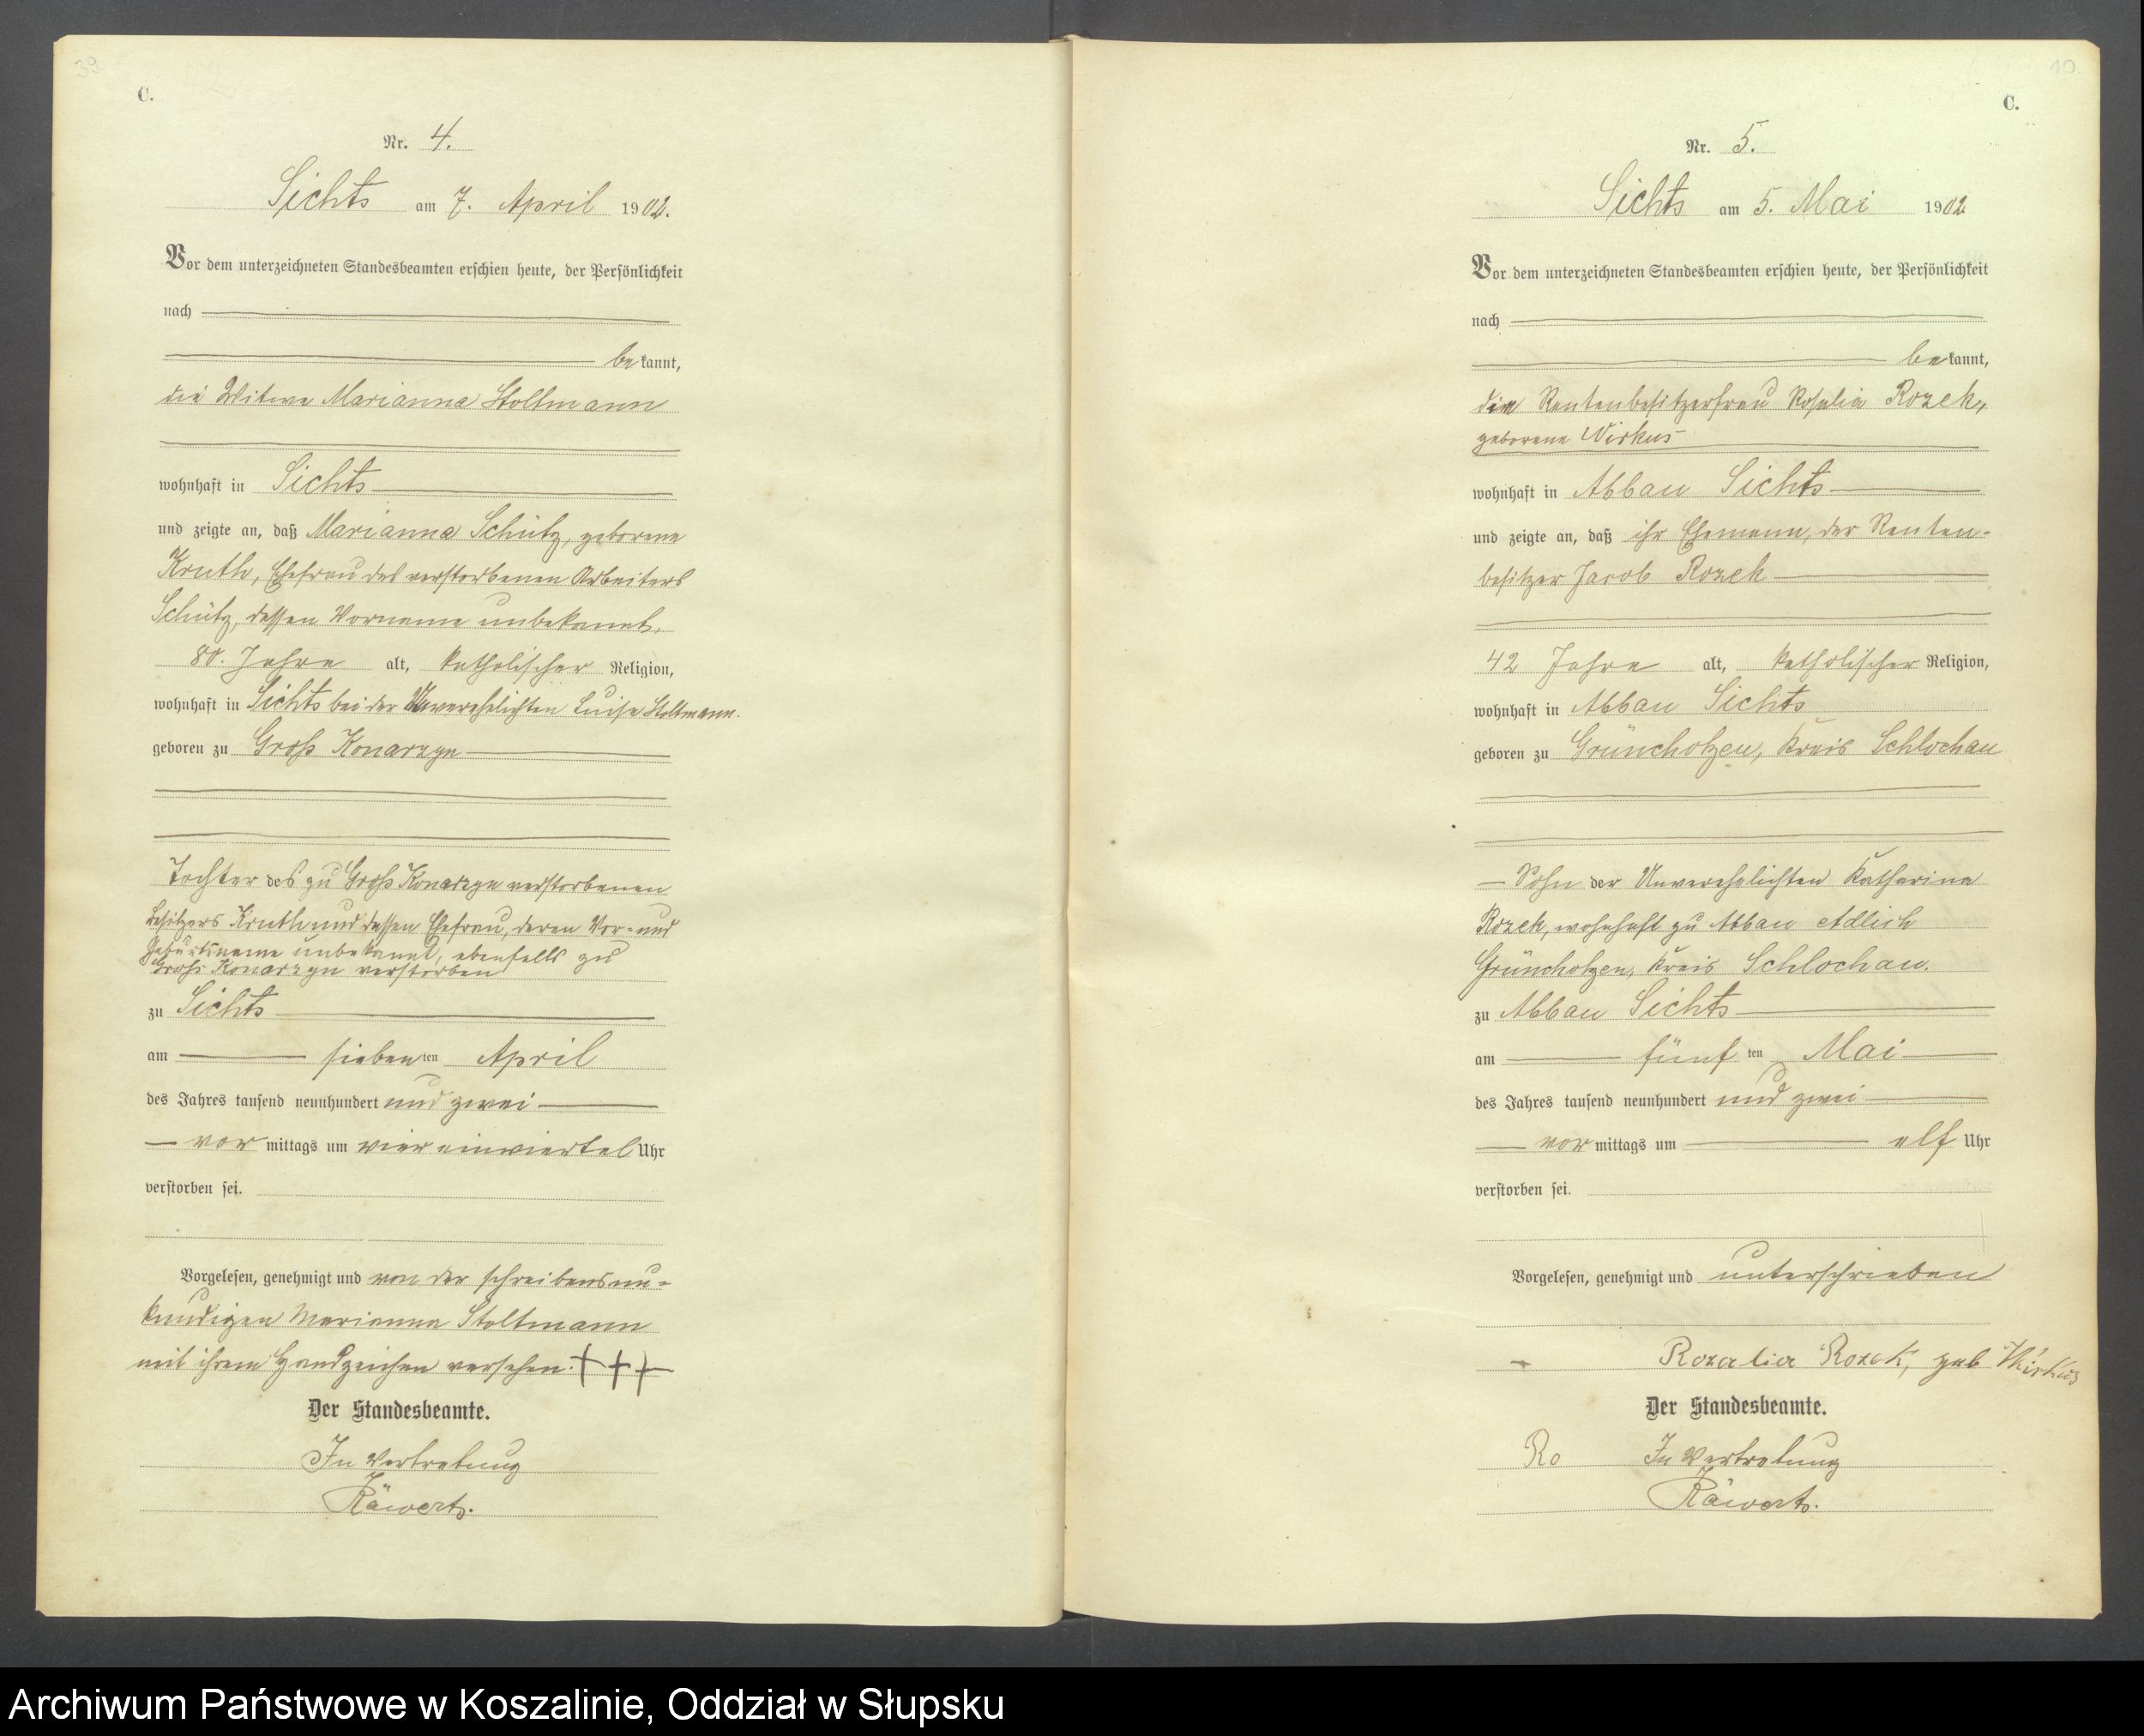 39
C.
Nr. 4.
Sichts am 7. April 1902.
Vor dem unterzeichneten Standesbeamten erschien heute, der Persönlichkeit
nach
bekannt,
die Witwe Marianna Stoltmann
wohnhaft in Sichts
und zeigte an, daß Marianna Schütz, geborene
Kruth, Ehefrau des verstorbenen Arbeiters
Schütz, dessen Vorname unbekannt,
80. Jahre alt, katholischer Religion,
wohnhaft in Sichts bei der Unverehelichten Luise Stoltmann.
geboren zu Groß Konarzyn
Tochter des zu Groß Konarzyn verstorbenen
Besitzers Kruth und dessen Ehefrau, deren Vor- und
Geburtsname unbekannt, ebenfalls zu
Groß Konarzyn verstorben
zu Sichts
am siebenten April
des Jahres tausend neunhundert und zwei
vor mittags um vier einviertel Uhr
verstorben sei.
Vorgelesen, genehmigt und von der schreibensun-
kundigen Marianna Stoltmann
mit ihrem Handzeichen versehen. +++
Der Standesbeamte.
In Vertretung
Räwerts.
40
C.
Nr. 5.
Sichts am 5. Mai 1902
Vor dem unterzeichneten Standesbeamten erschien heute, der Persönlichkeit
nach
bekannt,
die Rentenbesitzerfrau Rosalia Rozek,
geborene Wirkus
wohnhaft in Abbau Sichts
und zeigte an, daß ihr Ehemann, der Renten-
besitzer Jacob Rozek
42 Jahre alt, katholischer Religion,
wohnhaft in Abbau Sichts
geboren zu Grünchotzen, Kreis Schlochau
Sohn der Unverehelichten Katharina
Rozek, wohnhaft zu Abbau Adlich
Grünchotzen, Kreis Schlochau.
zu Abbau Sichts
am fünften Mai
des Jahres tausend neunhundert und zwei
vor mittags um elf Uhr
verstorben sei.
Vorgelesen, genehmigt und unterschrieben
Rozalia Rozek, geb Wirkus
Der Standesbeamte.
Ro In Vertretung
Räwerts.
Archiwum Państwowe w Koszalinie, Oddział w Słupsku